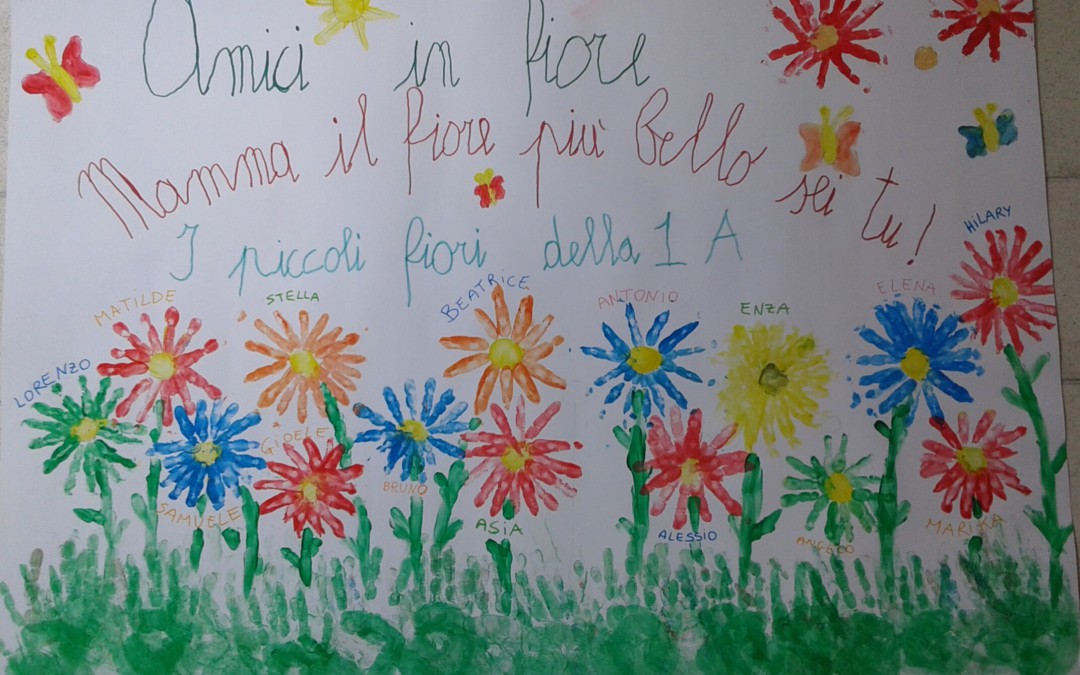 Amici in fiore
Mamma il fiore più bello sei tu!
I piccoli fiori della 1 A
HiLARY
MATILDE
STELLA
BEATRICE
ANTONIO
ENZA
ELENA
LORENZO
GIOELE
SAMUELE
BRUNO
ASiA
ALESSIO
MARIKA